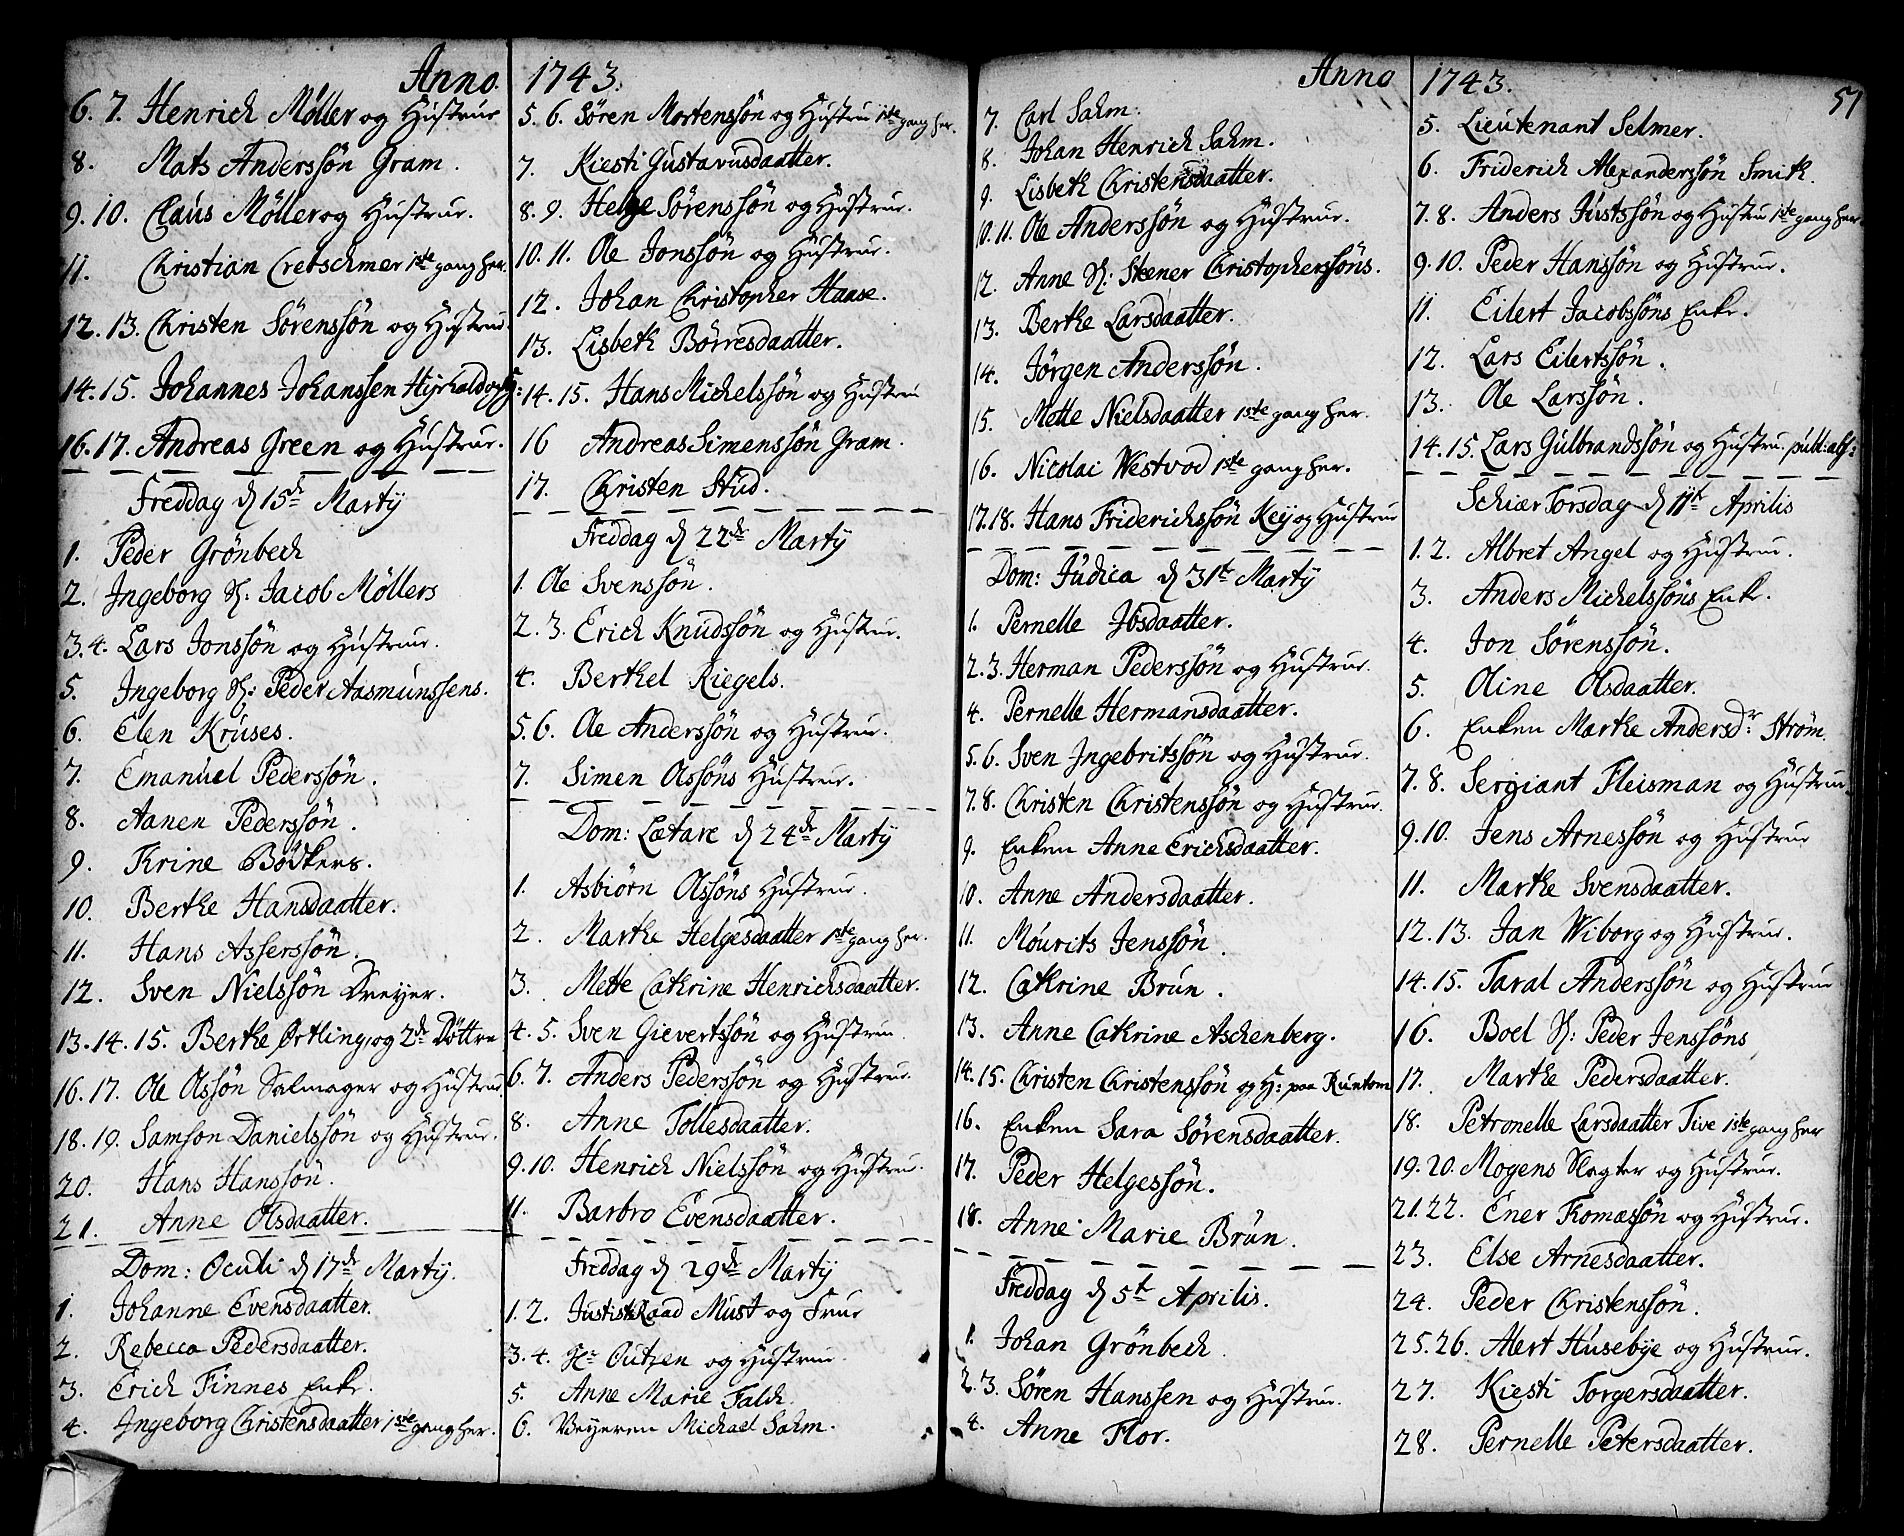 Anno 1743.
6. 7. Henrich Möller og Hustrue
8. Mats Anderssön Gram.
9. 10. Claus Möller og Hustrue.
11. Christian Cretschmer 1ste gang her.
12. 13. Christen Sörenssön og Hustrue.
14. 15. Johannes Johanssen
16. 17. Andreas Green og Hustrue.
Freddag d 15de Martij
1. Peder Grönbech
2. Ingeborg S: Jacob Möllers
3. 4. Lars Jonssön og Hustrue.
5. Ingeborg S: Peder Aasmunssens.
6. Elen Kruses.
7. Emanuel Pederssön.
8. Aanen Pederssön.
9. Trine Bödkers.
10. Berthe Hansdaatter.
11. Hans Asserssön.
12. Sven Nielssön Dreyer.
13. 14. 15. Berthe Örtling, og 2de Döttre
16. 17. Ole Olssön Salmager og Hustrue.
18. 19. Samson Danielssön og Hustrue.
20. Hans Hanssön.
21. Anne Olsdaatter.
Dom: Oculi d 17de Martij.
1. Johanne Evensdaatter.
2. Rebecca Pedersdaatter.
3. Erich Finnes Enke.
4. Ingeborg Christensdaatter 1ste gang her.
5. 6. Sören Mortenssön og Hustrue 1ste gang her.
7. Kiesti Gustavusdaatter.
8. 9. Helge Sörenssön og Hustrue.
10. 11. Ole Jonssön og Hustrue.
12. Johan Christopher Haase.
13. Lisbeth Börresdaatter.
14. 15. Hans Michelssön og Hustrue
16 Andreas Simenssön Gram.
17. Christen Stud.
Freddag d 22de Martij
1. Ole Svenssön.
2. 3. Erich Knudssön og Hustrue.
4. Berthel Riegels.
5. 6. Ole Anderssön og Hustrue.
7. Simen Olssöns Hustrue.
Dom: Lætare d 24de Martij
1. Asbiörn Olssöns Hustrue.
2. Marthe Helgesdaatter 1ste gang her.
3. Mette Cathrine Henrichsdaatter.
4. 5. Sven Gievertssön og Hustrue
6. 7. Anders Pederssön og Hustrue.
8. Anne Tollesdaatter.
9. 10. Henrich Nielssön og Hustrue.
11. Barbro Evensdaatter.
Freddag d 29de Martij
1. 2. Justits Raad Must og Frue
3. 4. Hr Outzen og Hustrue.
5. Anne Marie Falch.
6. Veyeren Michael Sahm.
Anno 1743.
51
7. Carl Sahm.
8. Johan Henrich Sahm.
9. Lisbeth Christensdaatter.
10. 11. Ole Anderssön og Hustrue.
12. Anne S: Steener Christopherssöns.
13. Berthe Larsdaatter.
14. Jörgen Anderssön.
15. Mette Nielsdaatter 1ste gang her.
16. Nicolai Westvod 1ste gang her.
17. 18. Hans Friderichssön Keij og Hustrue
Dom: Judica d 31te Martij
1. Pernelle Jbsdaatter.
2. 3. Herman Pederssön og Hustrue.
4. Pernelle Hermansdaatter.
5. 6. Sven Ingebritssön og Hustrue.
7. 8. Christen Christenssön og Hustrue.
9. Enken Anne Erichsdaatter.
10. Anne Andersdaatter.
11. Mourits Jenssön.
12. Cathrine Brun.
13. Anne Cathrine Aschenberg.
14. 15. Christen Christenssön og H: paa Runtom
16. Enken Sara Sörensdaatter.
17. Peder Helgessön.
18. Anne Marie Brun.
Freddag d 5te Aprilis.
1. Johan Grönbech.
2. 3. Sören Hanssen og Hustrue.
4. Anne Flor.
5. Lieutenant Selmer.
6. Friderich Alexanderssön Smith.
7. 8. Anders Justssön og Hustrue 1ste gang her.
9. 10. Peder Hanssön og Hustrue.
11. Eilert Jacobssöns Enke.
12. Lars Eilertssön.
13. Ole Larssön.
14. 15. Lars Gulbrandssön og Hustrue. publ: abs:
Schiær Torsdag d 11te Aprilis
1. 2. Albret Angel og Hustrue.
3. Anders Michelssöns Enke.
4. Jon Sörenssön.
5. Oline Olsdaatter.
6. Enken Marthe Andersdr Ström.
7. 8. Sergiant Fleisman og Hustrue.
9. 10. Jens Arnessön og Hustrue
11. Marthe Svensdaatter.
12. 13. Jan Wiborg og Hustrue.
14. 15. Taral Anderssön og Hustrue
16. Boel S: Peder Jenssöns
17. Marthe Pedersdaatter.
18. Petronelle Larsdaatter Tive 1ste gang her
19. 20. Mogens Slagter og Hustrue.
21. 22. Ener Tomæssön og Hustrue.
23. Else Arnesdaatter.
24. Peder Christenssön.
25. 26. Alert Husebye og Hustrue.
27. Kiesti Torgersdaatter.
28. Pernelle Petersdaatter.